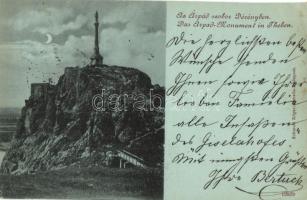 Az Árpád szobor Dévényben.
Das Árpád-Monument in Theben.
Die herzlichsten beste
Wünsche senden
Ihnen sowie Ihrer
lieben Familie
alle Insassen
des Giselahofes.
Mit innigsten Grüße
Ihre